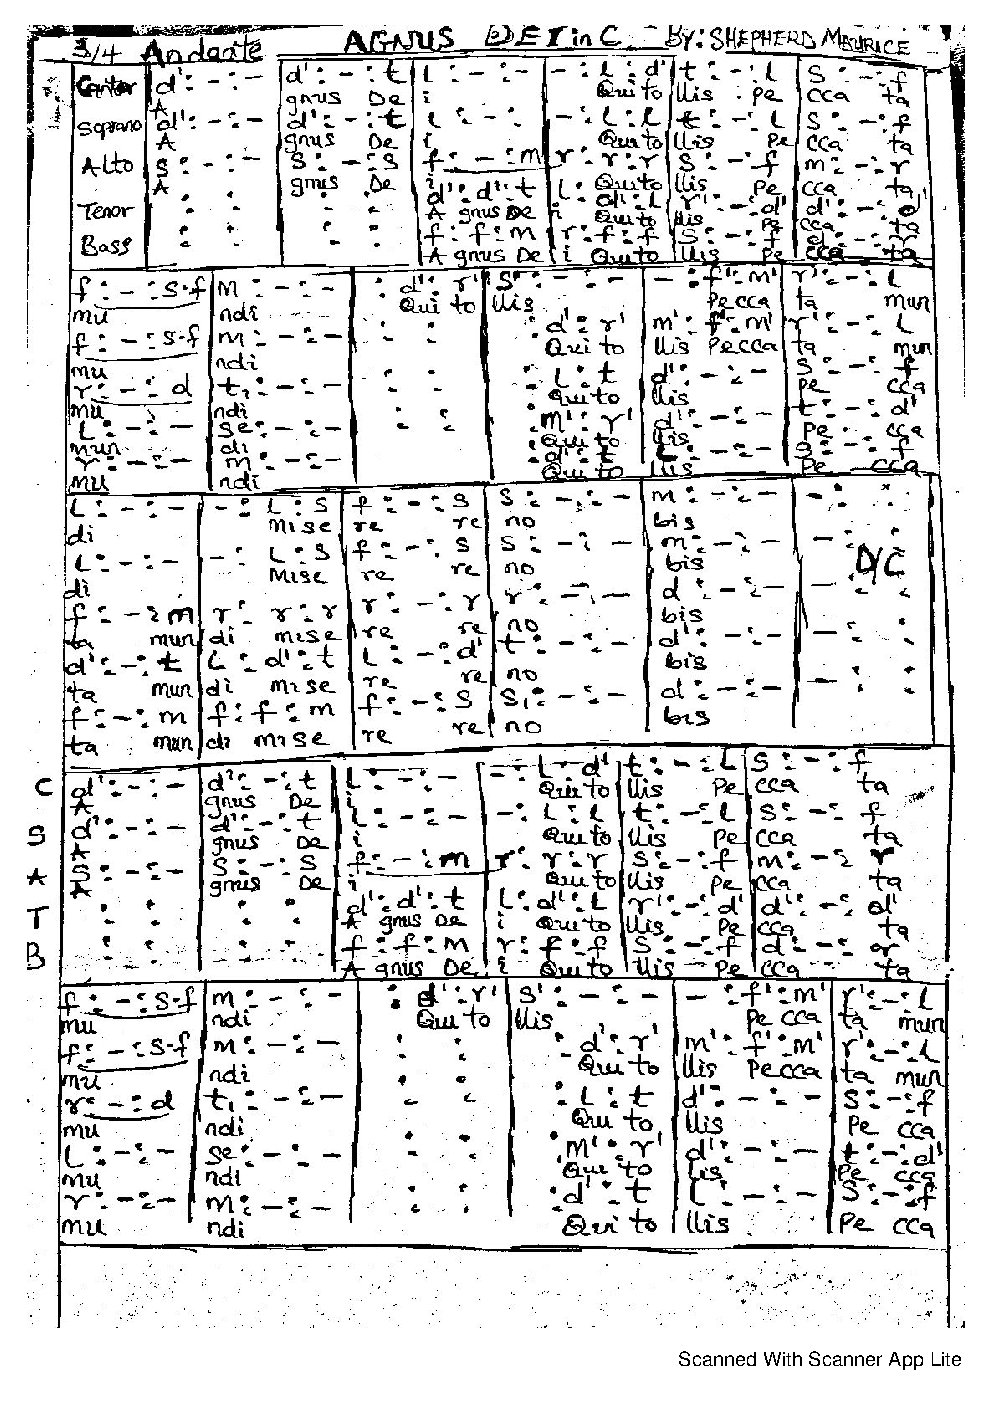 3/4 Andante AGNUS DEI in C By: SHEPHERD MAURICE
Cantor d' : - : - | d' : - : t | l : - : - | - : l : d' | t : - : l | s : - : f
A gnus De i Qui to llis Pe cca ta
Soprano d' : - : - | d' : - : t | l : - : - | - : l : l | t : - : l | s : - : f
A gnus De i Qui to llis Pe cca ta
Alto s : - : - | s : - : s | f : - : m | r : r : r | s : - : f | m : - : r
A gnus De i Qui to llis Pe cca ta
Tenor : : | : : | d' : d' : t | l : d' : l | r' : - : d' | d' : - : d'
A gnus De i Qui to llis Pe cca ta
Bass : : | : : | f : f : m | r : f : f | s : - : f
A gnus De i Qui to llis Pe cca ta
f : - : s.f | m : - : - | : d' : r' | s' : - : - | - : f' : m' | r' : - : l
mu ndi Qui to llis Pe cca ta mun
f : - : s.f | m : - : - | : : | : d' : r' | m' : f' : m' | r' : - : l
mu ndi Qui to llis Pe cca ta mun
r : - : d | t, : - : - | : : | : l : t | d' : - : - | s : - : f
mu ndi Qui to llis Pe cca
l : - : - | se : - : - | : : | : m' : r' | d' : - : - | t : - : d'
mun di Qui to llis Pe cca
r : - : - | m : - : - | : : | : d' : t | l : - : - | s : - : f
mu ndi Qui to llis Pe cca
l : - : - | - : l : s | f : - : s | s : - : - | m : - : - | - : :
di mise re re no bis
l : - : - | - : l : s | f : - : s | s : - : - | m : - : - | - : : D/C
di mise re re no bis
f : - : m | r : r : r | r : - : r | r : - : - | d : - : - | - : :
ta mun di mise re re no bis
d' : - : t | l : d' : t | l : - : d' | t : - : - | d' : - : - | - : :
ta mun di mise re re no bis
f : - : m | f : f : m | f : - : s | s, : - : - | d : - : - | - : :
ta mun di mise re re no bis
C d' : - : - | d' : - : t | l : - : - | - : l : d' | t : - : l | s : - : f
A gnus De i Qui to llis Pe cca ta
S d' : - : - | d' : - : t | l : - : - | - : l : l | t : - : l | s : - : f
A gnus De i Qui to llis Pe cca ta
A s : - : - | s : - : s | f : - : m | r : r : r | s : - : f | m : - : r
A gnus De i Qui to llis Pe cca ta
T : : | : : | d' : d' : t | l : d' : l | r' : - : d' | d' : - : d'
A gnus De i Qui to llis Pe cca ta
B : : | : : | f : f : m | r : f : f | s : - : f | d : - : r
A gnus De i Qui to llis Pe cca ta
f : - : s.f | m : - : - | : d' : r' | s' : - : - | - : f' : m' | r' : - : l
mu ndi Qui to llis Pe cca ta mun
f : - : s.f | m : - : - | : : | : d' : r' | m' : f' : m' | r' : - : l
mu ndi Qui to llis Pe cca ta mun
r : - : d | t, : - : - | : : | : l : t | d' : - : - | s : - : f
mu ndi Qui to llis Pe cca
l : - : - | se : - : - | : : | : m' : r' | d' : - : - | t : - : d'
mu ndi Qui to llis Pe cca
r : - : - | m : - : - | : : | : d' : t | l : - : - | s : - : f
mu ndi Qui to llis Pe cca
Scanned With Scanner App Lite